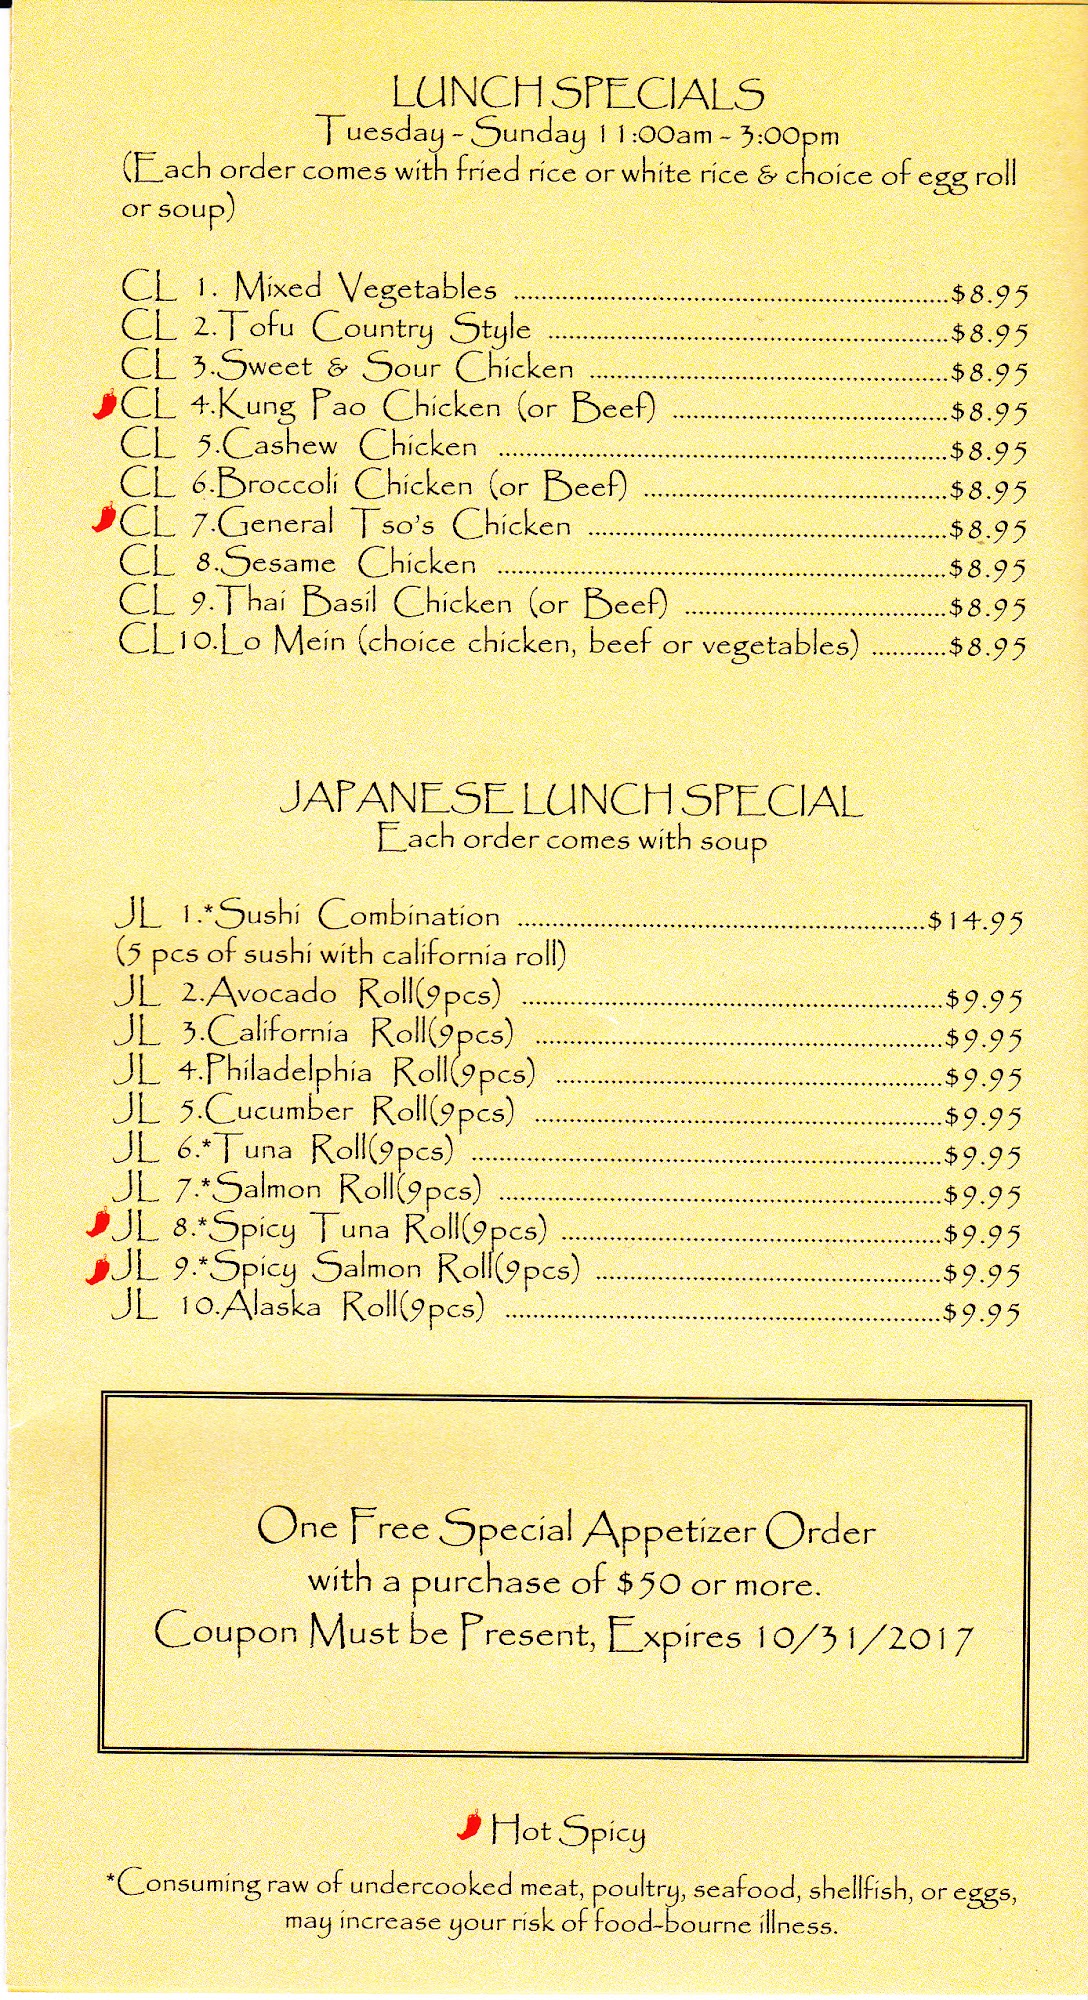 LUNCH SPECIALS
Tuesday - Sunday 11:00am - 3:00pm
(Each order comes with fried rice or white rice & choice of egg roll
or soup)
CL 1. Mixed Vegetables ........................................................................$8.95
CL 2.Tofu Country Style ..................................................................$8.95
CL 3.Sweet & Sour Chicken ...........................................................$8.95
CL 4.Kung Pao Chicken (or Beef) .............................................$8.95
CL 5.Cashew Chicken ..........................................................................$8.95
CL 6.Broccoli Chicken (or Beef) ..................................................$8.95
CL 7.General Tso's Chicken ...........................................................$8.95
CL 8.Sesame Chicken ..........................................................................$8.95
CL 9.Thai Basil Chicken (or Beef) ...........................................$8.95
CL10.Lo Mein (choice chicken, beef or vegetables) ............$8.95
JAPANESE LUNCH SPECIAL
Each order comes with soup
JL 1.*Sushi Combination ...................................................................$14.95
(5 pcs of sushi with california roll)
JL 2.Avocado Roll(9pcs) ......................................................................$9.95
JL 3.California Roll(9pcs) ...................................................................$9.95
JL 4.Philadelphia Roll(9pcs) ................................................................$9.95
JL 5.Cucumber Roll(9pcs) ...................................................................$9.95
JL 6.*Tuna Roll(9pcs) ..............................................................................$9.95
JL 7.*Salmon Roll(9pcs) .........................................................................$9.95
JL 8.*Spicy Tuna Roll(9pcs) ...............................................................$9.95
JL 9.*Spicy Salmon Roll(9pcs) .........................................................$9.95
JL 10.Alaska Roll(9pcs) ........................................................................$9.95
One Free Special Appetizer Order
with a purchase of $50 or more.
Coupon Must be Present, Expires 10/31/2017
Hot Spicy
*Consuming raw of undercooked meat, poultry, seafood, shellfish, or eggs,
may increase your risk of food-bourne illness.